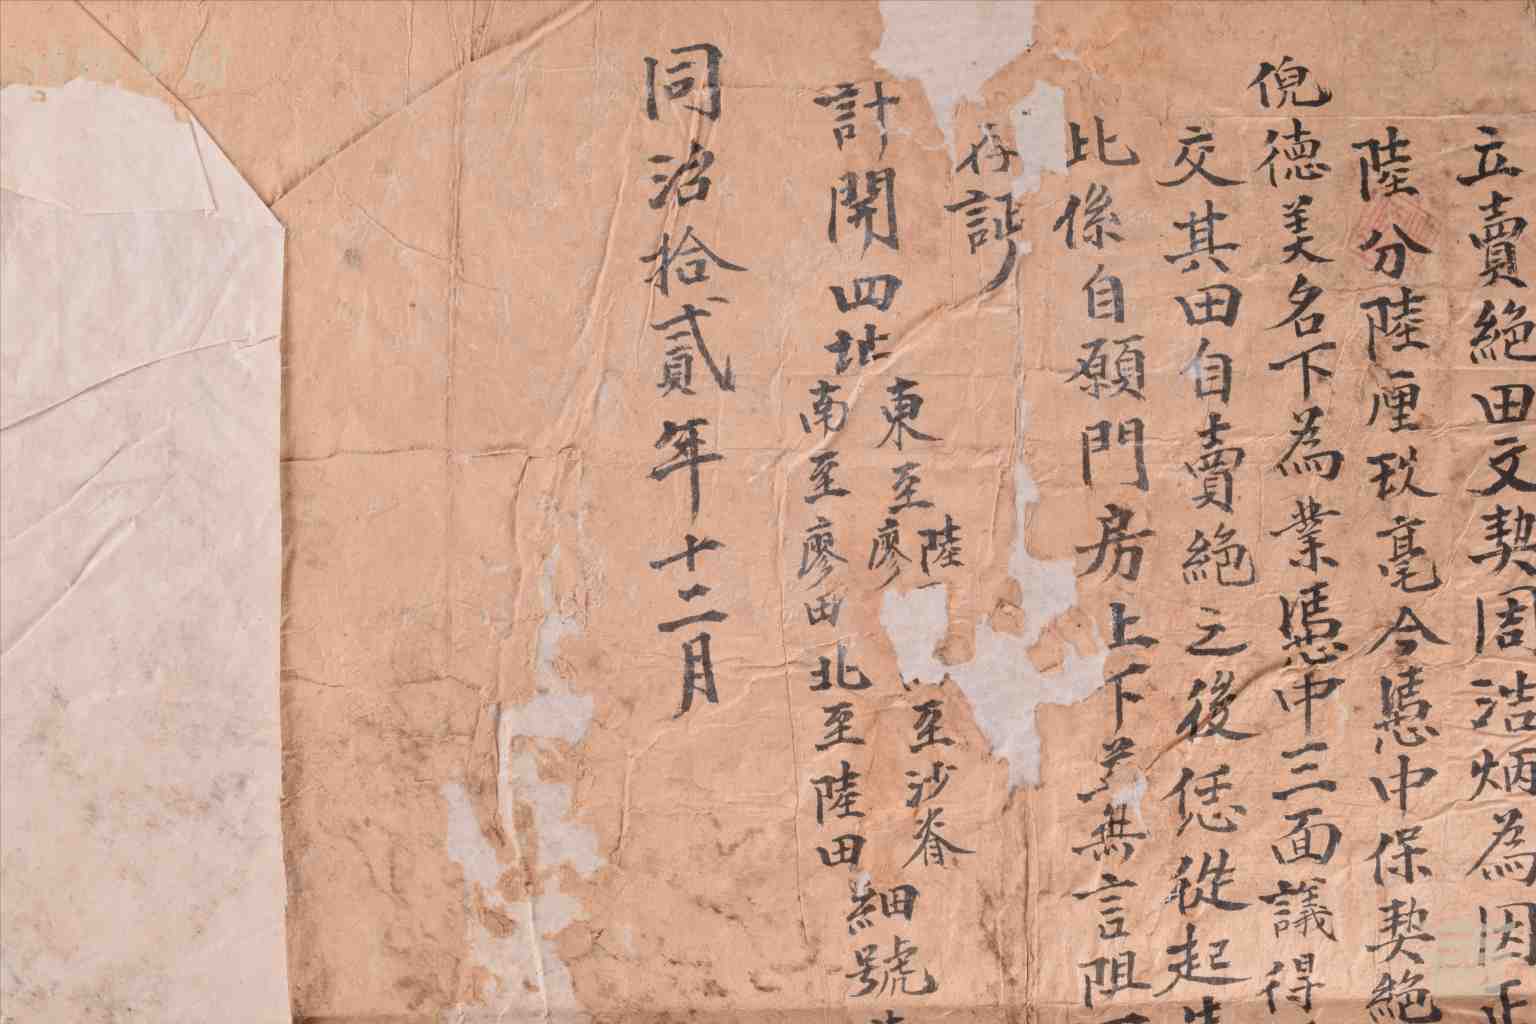 立賣絕田文契周浩炳為因正
陸分陸厘玖毫今憑中保契絕
倪德美名下為業憑中三面議得
交其田自賣絕之後恁從起
此係自願門房上下並無言阻
存証
計開四址
東至廖陸
至沙眷
南至廖田北至陸田
細號
同治拾貳年十二月